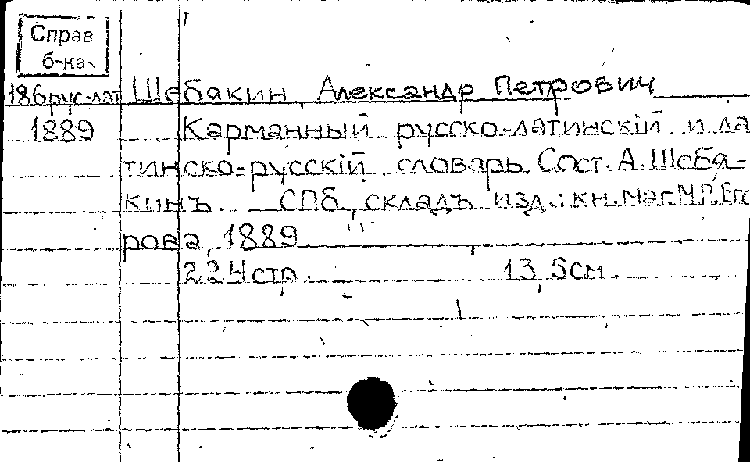 Справ
б-ка
186 рус-лат Шебакин, Александр Петрович
1889 Карманный русско-латинскiй и ла
тинско-русскiй словарь. Сост. А. Шеба-
кинъ. СПб, складъ изд.: кн. маг. М.П. Его
рова, 1889
224 стр. 13,5см.